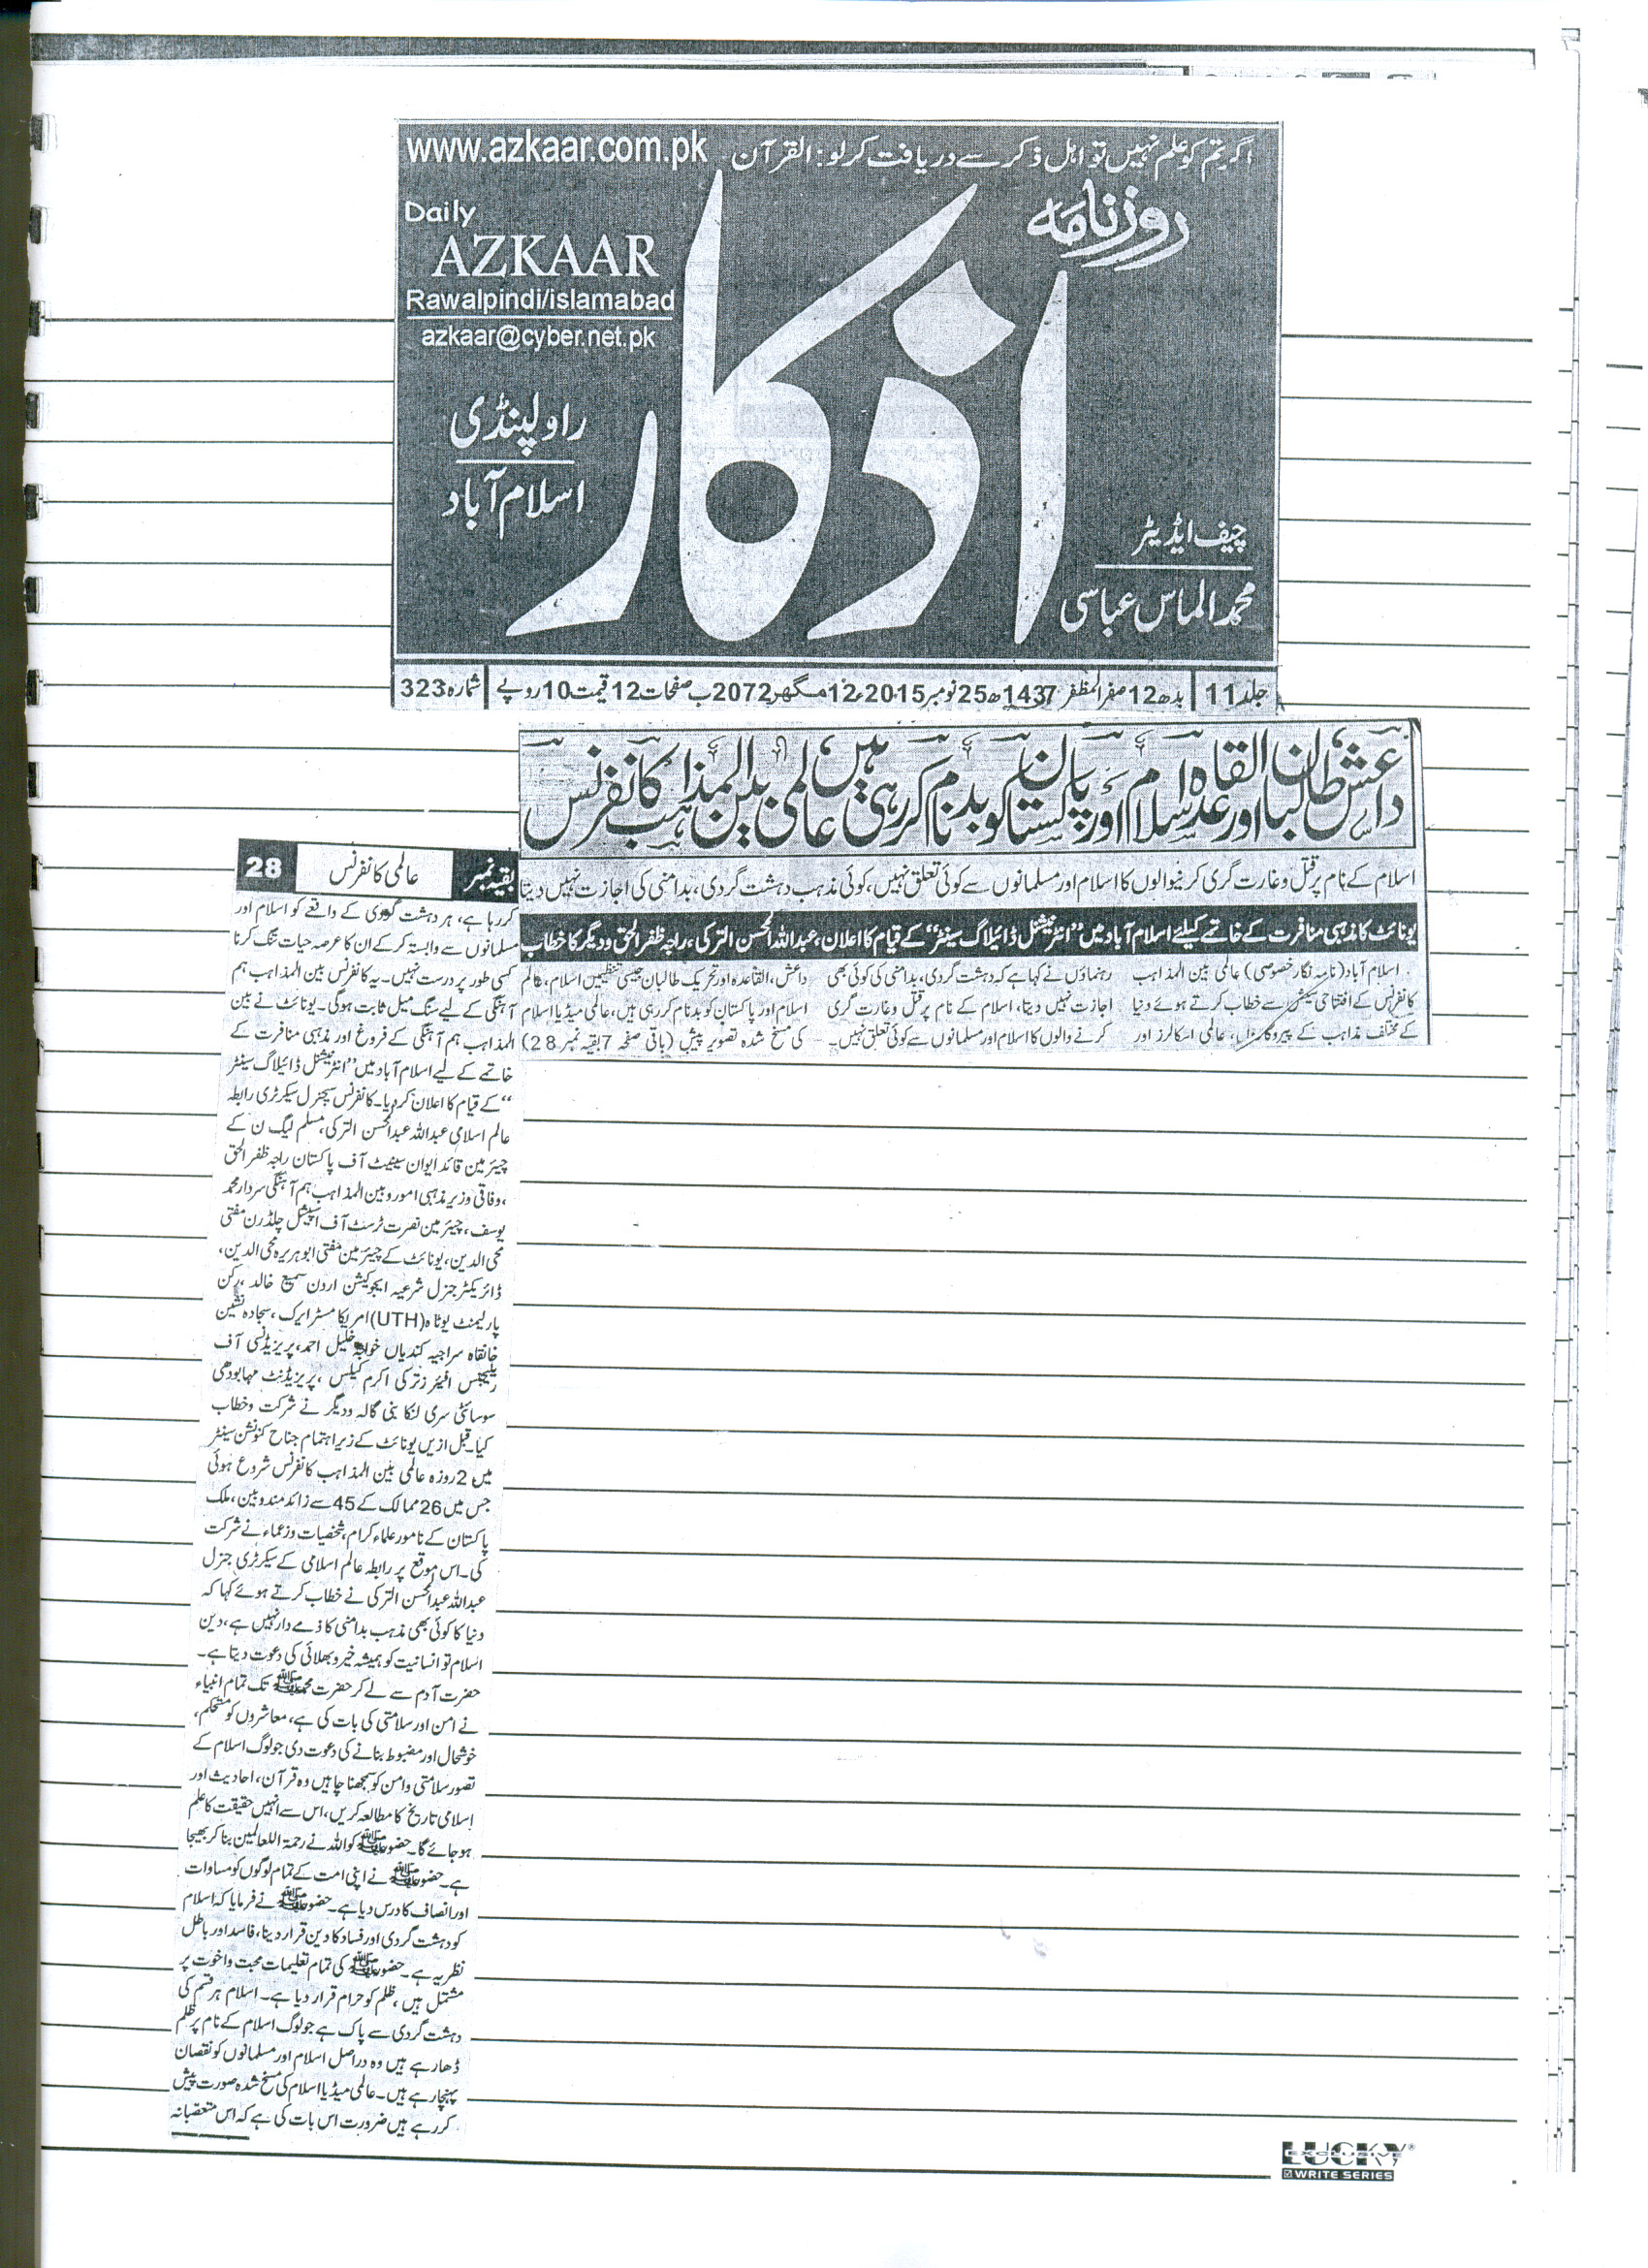 www.azkaar.com.pk اگر تم کو علم نہیں تو اہل ذکر سے دریافت کر لو: القرآن
Daily
AZKAAR
Rawalpindi/islamabad
azkaar@cyber.net.pk
روزنامہ
اذکار
راولپنڈی
اسلام آباد
چیف ایڈیٹر
محمد الماس عباسی
جلد 11 بدھ 12 صفر المظفر 1437ھ 25 نومبر 2015ء 12 مگھر 2072ب صفحات 12 قیمت 10 روپے شمارہ 323
داعش طالبان اور القاعدہ اسلام اور پاکستان کو بدنام کر رہی ہیں، عالمی بین المذاہب کانفرنس
اسلام کے نام پر قتل و غارت گری کرنیوالوں کا اسلام اور مسلمانوں سے کوئی تعلق نہیں، کوئی مذہب دہشت گردی، بدامنی کی اجازت نہیں دیتا
یونائٹ کا مذہبی منافرت کے خاتمے کیلئے اسلام آباد میں ”انٹرنیشنل ڈائیلاگ سینٹر“ کے قیام کا اعلان، عبداللہ الحسن الترکی، راجہ ظفر الحق و دیگر کا خطاب
اسلام آباد (نامہ نگار خصوصی) عالمی بین المذاہب
کانفرنس کے افتتاحی سیشن سے خطاب کرتے ہوئے دنیا
کے مختلف مذاہب کے پیروکاروں، عالمی اسکالرز اور
رہنماؤں نے کہا ہے کہ دہشت گردی، بدامنی کی کوئی بھی
اجازت نہیں دیتا، اسلام کے نام پر قتل و غارت گری
کرنے والوں کا اسلام اور مسلمانوں سے کوئی تعلق نہیں۔
داعش، القاعدہ اور تحریک طالبان جیسی تنظیمیں اسلام، عالم
اسلام اور پاکستان کو بدنام کر رہی ہیں، عالمی میڈیا اسلام
کی مسخ شدہ تصویر پیش (باقی صفحہ 7 بقیہ نمبر 28)
بقیہ نمبر عالمی کانفرنس 28
کر رہا ہے، ہر دہشت گردی کے واقعے کو اسلام اور
مسلمانوں سے وابستہ کر کے ان کا عرصہ حیات تنگ کرنا
کسی طور پر درست نہیں۔ یہ کانفرنس بین المذاہب ہم
آہنگی کے لیے سنگ میل ثابت ہوگی۔ یونائٹ نے بین
المذاہب ہم آہنگی کے فروغ اور مذہبی منافرت کے
خاتمے کے لیے اسلام آباد میں ”انٹرنیشنل ڈائیلاگ سینٹر
“ کے قیام کا اعلان کر دیا۔ کانفرنس سیجنرل سیکرٹری رابطہ
عالم اسلامی عبداللہ عبدالحسن الترکی، مسلم لیگ ن کے
چیئرمین قائد ایوان سینیٹ آف پاکستان راجہ ظفر الحق
،وفاقی وزیر مذہبی امور و بین المذاہب ہم آہنگی سردار محمد
یوسف، چیئرمین نصرت ٹرسٹ آف اسپیشل چلڈرن مفتی
محی الدین، یونائٹ کے چیئرمین مفتی ابوہریرہ محی الدین،
ڈائریکٹر جنرل شرعیہ ایجوکیشن اردن سمیع خالد، رکن
پارلیمنٹ یوٹاہ (UTH) امریکا مسٹر ایرک، سجادہ نشین
خانقاہ سراجیہ کندیاں خواجہ خلیل احمد، پریزیڈنسی آف
ریلیجس افیئرز ترکی اکرم کیلس، پریزیڈنٹ مہابودھی
سوسائٹی سری لنکا بنی گالہ و دیگر نے شرکت و خطاب
کیا۔ قبل ازیں یونائٹ کے زیر اہتمام جناح کنونشن سینٹر
میں 2 روزہ عالمی بین المذاہب کانفرنس شروع ہوئی
جس میں 26 ممالک کے 45 سے زائد مندوبین، ملک
پاکستان کے نامور علماء کرام، شخصیات و زعماء نے شرکت
کی۔ اس موقع پر رابطہ عالم اسلامی کے سیکرٹری جنرل
عبداللہ عبدالحسن الترکی نے خطاب کرتے ہوئے کہا کہ
دنیا کا کوئی بھی مذہب بدامنی کا ذمے دار نہیں ہے، دین
اسلام تو انسانیت کو ہمیشہ خیر و بھلائی کی دعوت دیتا ہے۔
حضرت آدم سے لے کر حضرت محمدﷺ تک تمام انبیاء
نے امن اور سلامتی کی بات کی ہے، معاشروں کو مستحکم،
خوشحال اور مضبوط بنانے کی دعوت دی جو لوگ اسلام کے
تصور سلامتی و امن کو سمجھنا چاہیں وہ قرآن، احادیث اور
اسلامی تاریخ کا مطالعہ کریں، اس سے انہیں حقیقت کا علم
ہو جائے گا۔ حضورﷺ کو اللہ نے رحمۃ اللعالمین بنا کر بھیجا
ہے۔ حضورﷺ نے اپنی امت کے تمام لوگوں کو مساوات
اور انصاف کا درس دیا ہے۔ حضورﷺ نے فرمایا کہ اسلام
کو دہشت گردی اور فساد کا دین قرار دینا، فاسد اور باطل
نظریہ ہے۔ حضورﷺ کی تمام تعلیمات محبت و اخوت پر
مشتمل ہیں، ظلم کو حرام قرار دیا ہے۔ اسلام ہر قسم کی
دہشت گردی سے پاک ہے جو لوگ اسلام کے نام پر ظلم
ڈھا رہے ہیں وہ دراصل اسلام اور مسلمانوں کو نقصان
پہنچا رہے ہیں۔ عالمی میڈیا اسلام کی مسخ شدہ صورت پیش
کر رہے ہیں ضرورت اس بات کی ہے کہ اس متعصبانہ
LUCKY
EXCLUSIVE
WRITE SERIES